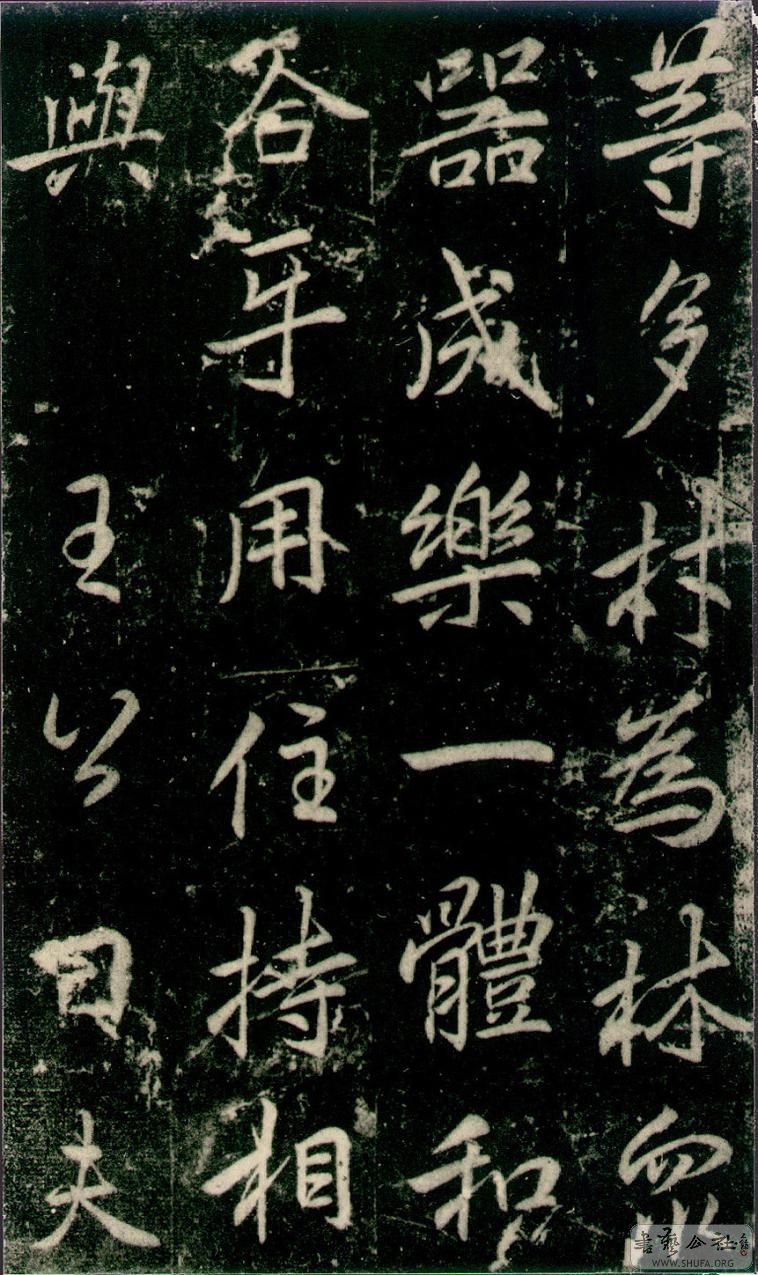 等多材為林眾
器成樂一體和
合牙用住持相
與　王公曰夫
書藝公社
WWW.SHUFA.ORG